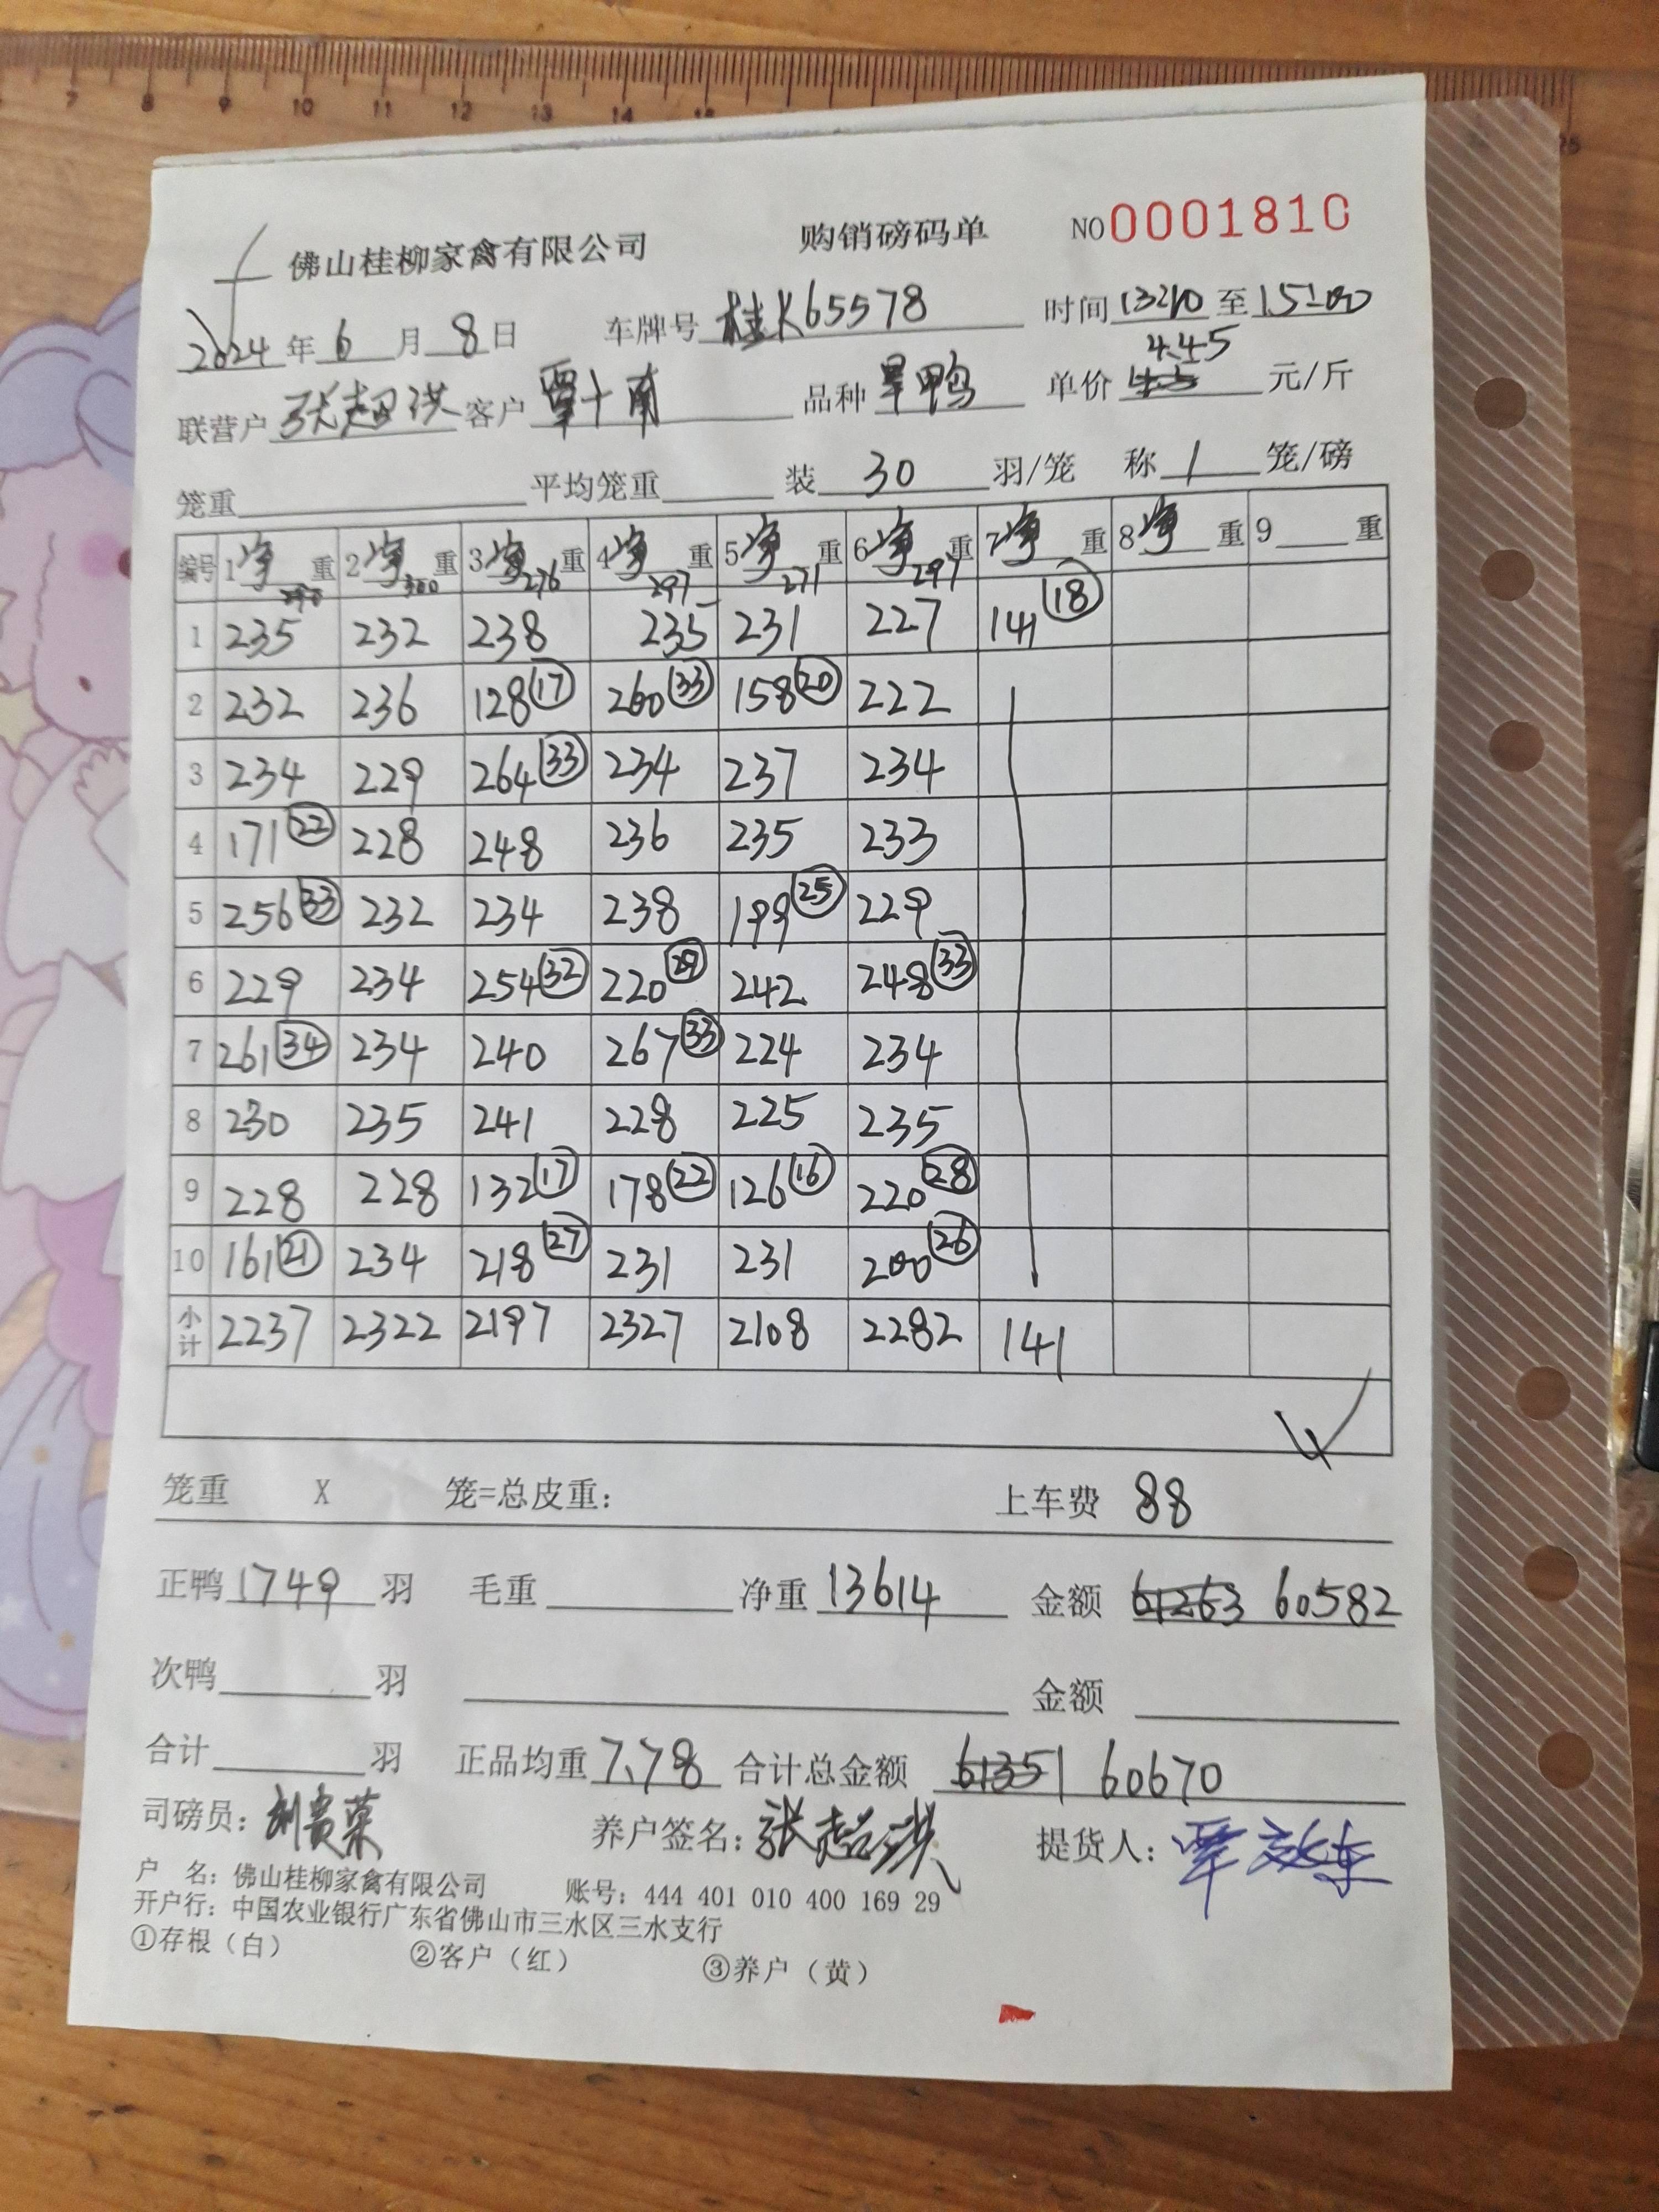 7 8 9 10 11 12 13 14 15
佛山桂柳家禽有限公司 购销磅码单 NO 0001810
2024年6月8日 车牌号 桂K65578 时间 13:40 至 15:00
4.45
联营户 张超洪 客户 覃十南 品种 旱鸭 单价 4.5 元/斤
笼重 平均笼重 装 30 羽/笼 称 1 笼/磅
编号 1净重 2净重 3净重 4净重 5净重 6净重 7净重 8净重 9 重
300 276 297 271 297
1 235 232 238 235 231 227 141 (18)
2 232 236 128 (17) 260 (33) 158 (20) 222
3 234 229 264 (33) 234 237 234
4 171 (22) 228 248 236 235 233
5 256 (33) 232 234 238 199 (25) 229
6 229 234 254 (32) 220 (29) 242 248 (33)
7 261 (34) 234 240 267 (33) 224 234
8 230 235 241 228 225 235
9 228 228 132 (17) 178 (22) 126 (16) 220 (28)
10 161 (21) 234 218 (27) 231 231 200 (26)
小计 2237 2322 2197 2327 2108 2282 141
笼重 X 笼=总皮重： 上车费 88
正鸭 1749 羽 毛重 净重 13614 金额 61263 60582
次鸭 羽 金额
合计 羽 正品均重 7.78 合计总金额 61351 60670
司磅员：刘贵荣 养户签名：张超洪 提货人：覃
户 名：佛山桂柳家禽有限公司 账号：444 401 010 400 169 29
开户行：中国农业银行广东省佛山市三水区三水支行
①存根（白） ②客户（红） ③养户（黄）